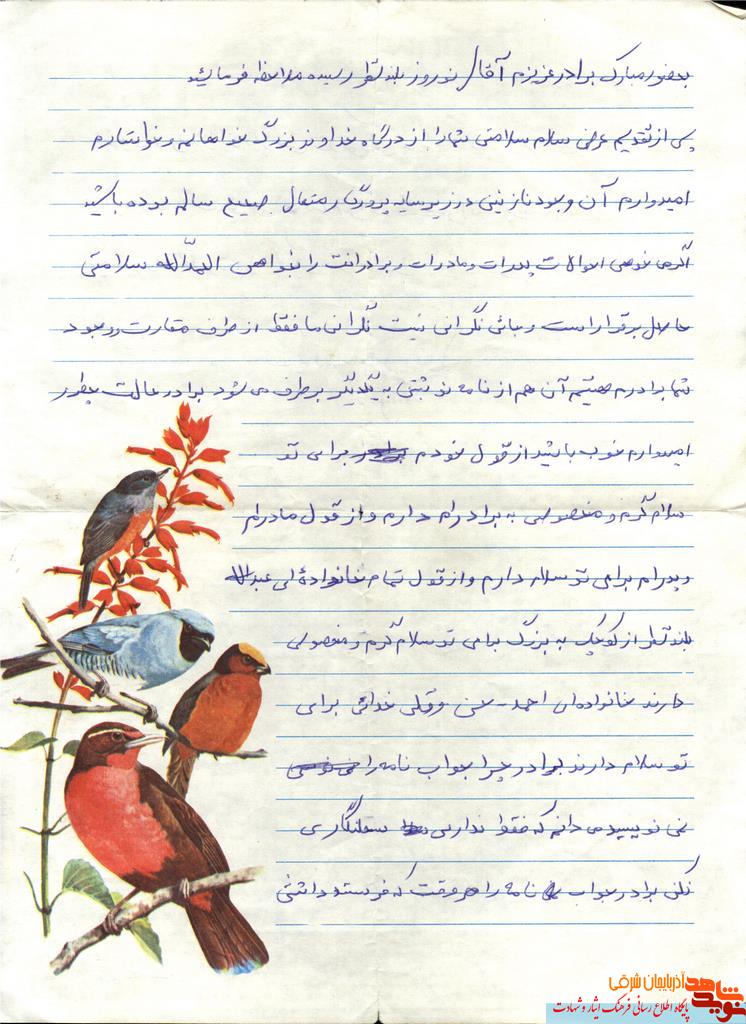 بحضور مبارک برادر عزیزم آقای نوروز بلند نظر رسیده ملاحظه فرمائید
پس از تقدیم عرض سلام سلامتی شما را از درگاه خداوند بزرگ خواهانم و خواستارم
امیدوارم آن وجود نازنینی در زیر سایه پروردگار متعال صحیح سالم بوده باشید
اگر می خوهی احوالات پدرات و مادرات و برادرانت را بخواهی الحمدالله سلامتی
حاصل برقرار است و جائی نگرانی نیست نگرانی ما فقط از طرف وجود
شما برادرم هستیم آن هم از نامه نوشتنی به یکدیگر بر طرف می شود برادر حالت چطور
امیدوارم خوب باشید از قول خودم برای تو
سلام گرم و مخصوصی به برادرام دارم و از قول مادرام
و پدرام برای تو سلام دارم و از قول تمام خانوادۀ ی عبداله
بلند نظر از کوچک به بزرگ برای تو سلام گرم و مخصوصی
دارند خانواده ای احمد حسن و قلی خدائی برای
تو سلام دارند برادر چرا جواب نامه را
نمی نویسید می دانم که فقط نداری سهلنگاری
نکن برادر جواب نامه را هر وقت که فرستاده داشتی
نوید شاهد آذربایجان شرقی
پایگاه اطلاع رسانی فرهنگ ایثار و شهادت